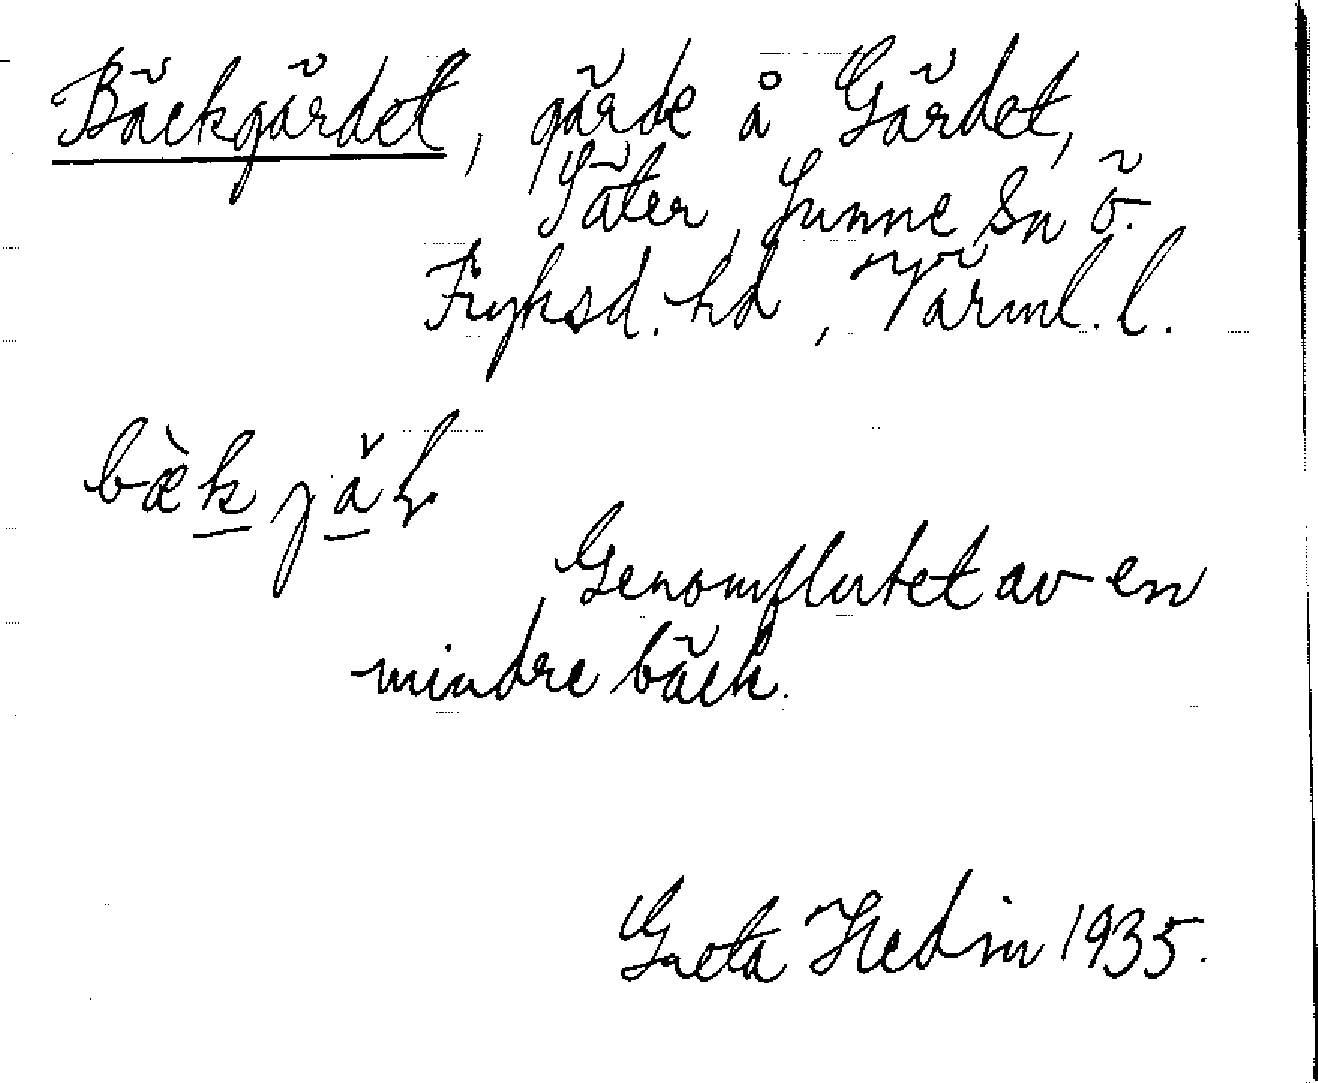 Bäckgärdet, gärde å Gärdet,
Säter, Sunne sn Ö.
Fryksd. hd, Värml. l.
bæ̀k jäɽ
Genomflutet av en
mindre bäck.
Greta Hedin 1935.